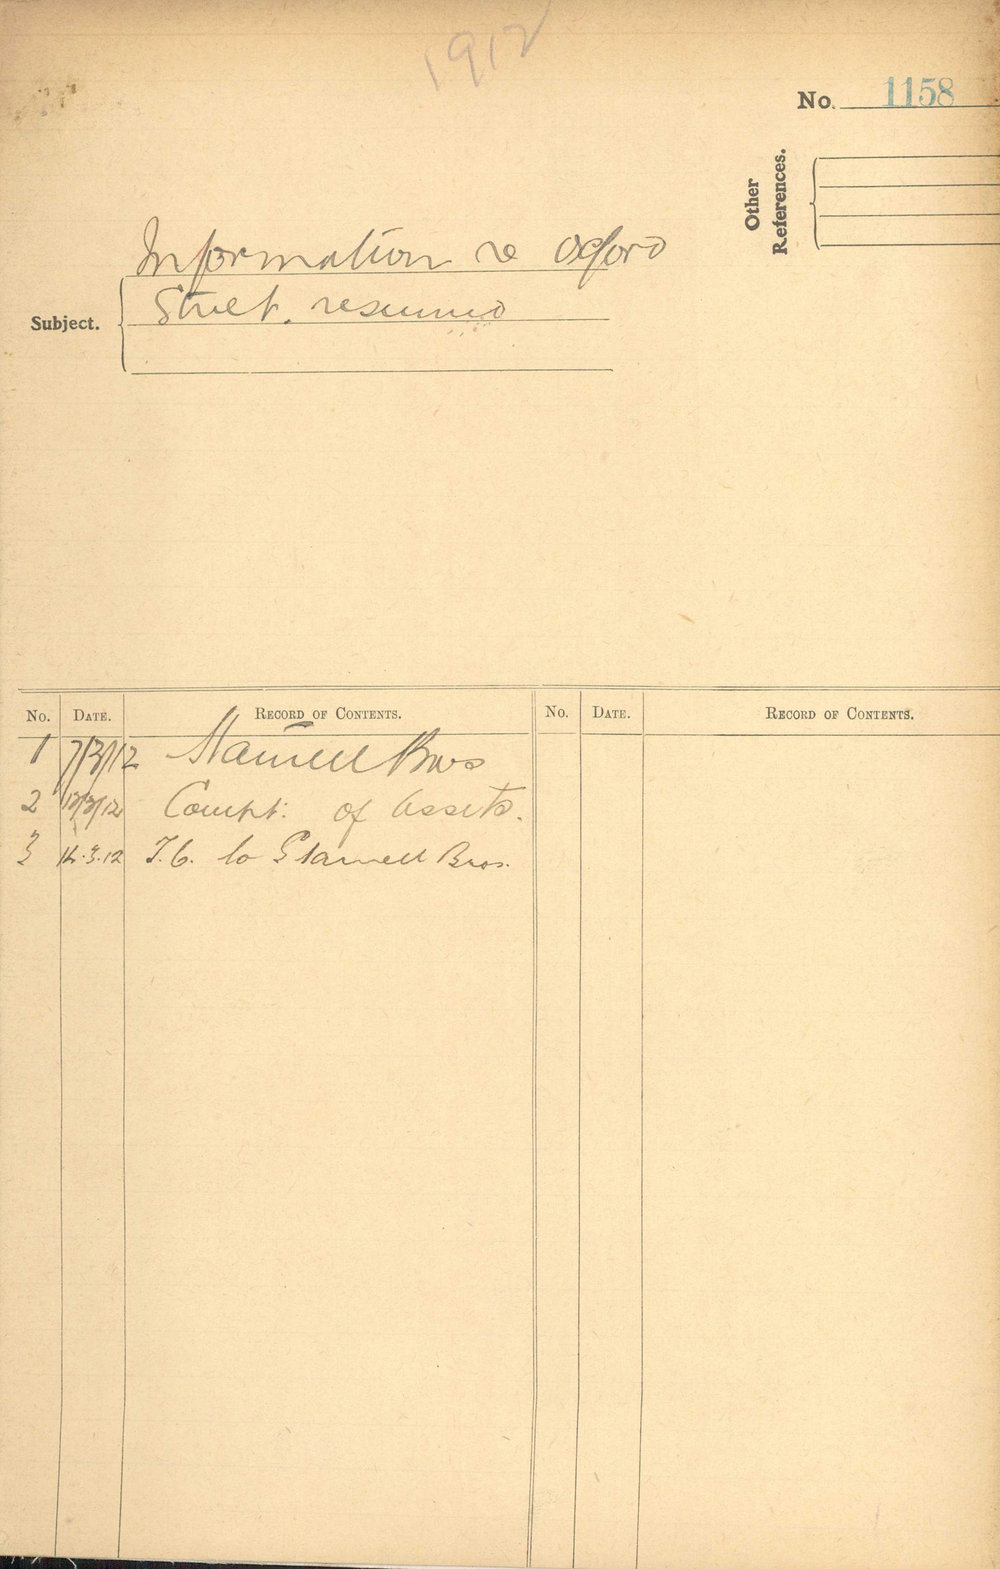 1912
No. 1158
Other
References.
Information re Oxford
Subject.
Street. resumed
No. DATE. RECORD OF CONTENTS. No. DATE. RECORD OF CONTENTS.
1 7/3/12 Bros
2 12/3/12 Compt: of Assets.
3 14.3.12 T.C. to Bros.